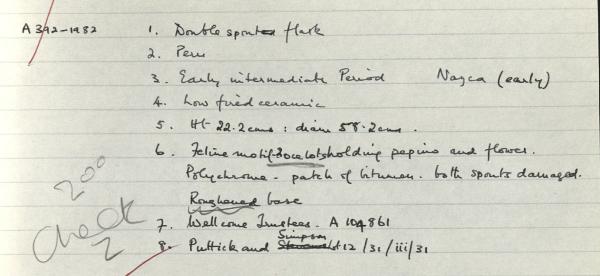 A 392-1982 1. Double spouted flask
2. Peru
3. Early intermediate Period Nazca (early)
4. Low fired ceramic
5. Ht 22.2cms : diam 58.2cms.
6. Feline motif-3ocelots holding pepino and flower.
Polychrome - patch of bitumen. both spouts damaged.
Roughened base
7. Wellcome Trustees. A 104861
Simpson
8. Puttick and lot 12/31/iii/31
Check 200
2